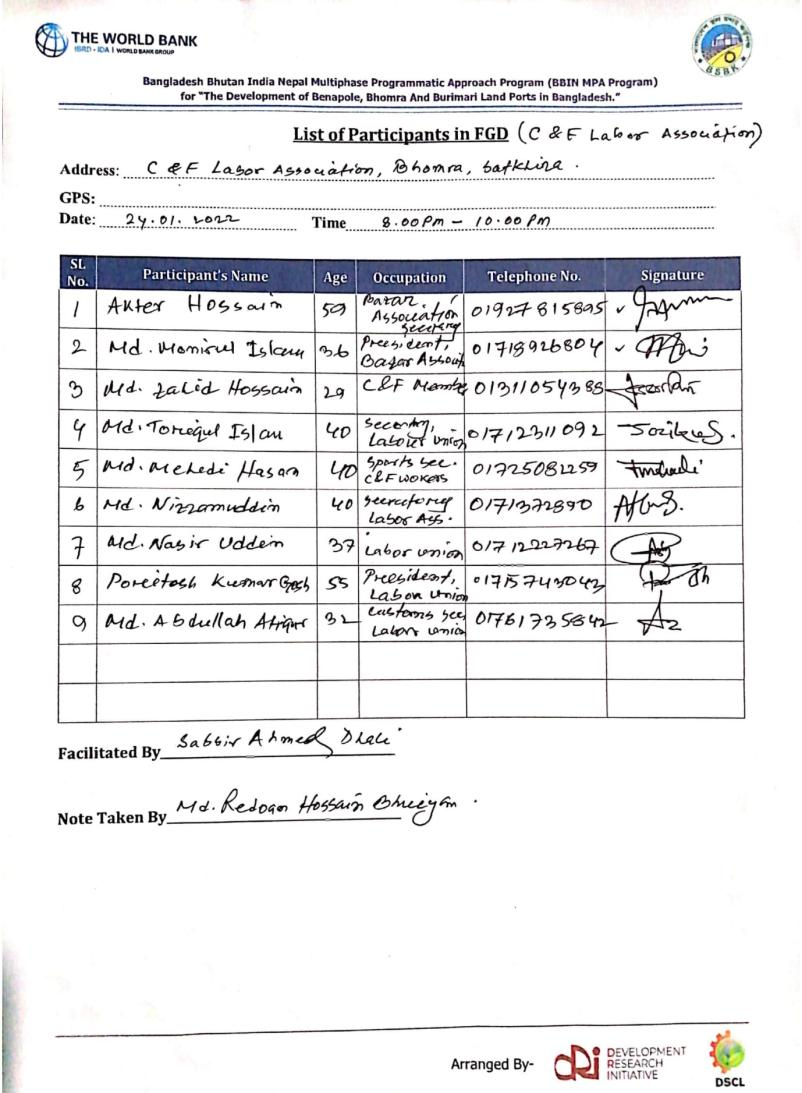 THE WORLD BANK
IBRD • IDA | WORLD BANK GROUP
BSBK
Bangladesh Bhutan India Nepal Multiphase Programmatic Approach Program (BBIN MPA Program)
for "The Development of Benapole, Bhomra And Burimari Land Ports in Bangladesh."
List of Participants in FGD (C & F Labor Association)
Address: C & F Labor Association, Bhomra, Satkhira.
GPS:
Date: 24.01.2022 Time 8.00 Pm – 10.00 PM
SL No. Participant's Name Age Occupation Telephone No. Signature
1 Akter Hossain 59 Bazar Association Secretary 01927815895
2 Md. Monirul Islam 36 President, Bazar Associat 01718926804
3 Md. Zahid Hossain 29 C&F Membe 01311054388
4 Md. Toriqul Islam 40 Secretry, Labour Union 01712311092
5 Md. Mehedi Hasan 40 Sports Sec. C&F Wokers 01725081259
6 Md. Nizzamuddin 40 Secreatoriy Labor Ass. 0171372890
7 Md. Nasir Uddein 37 Labor union 01712227267
8 Poreitosh Kumar Gosh 55 Preesident, Labon Union 01715743042
9 Md. Abdullah Atiqur 32 Customs Sec Labor union 01761735842
Facilitated By Sabbir Ahmed Dhali
Note Taken By Md. Redoan Hossain Bhuiyan.
Arranged By-
DRi DEVELOPMENT
RESEARCH
INITIATIVE
DSCL